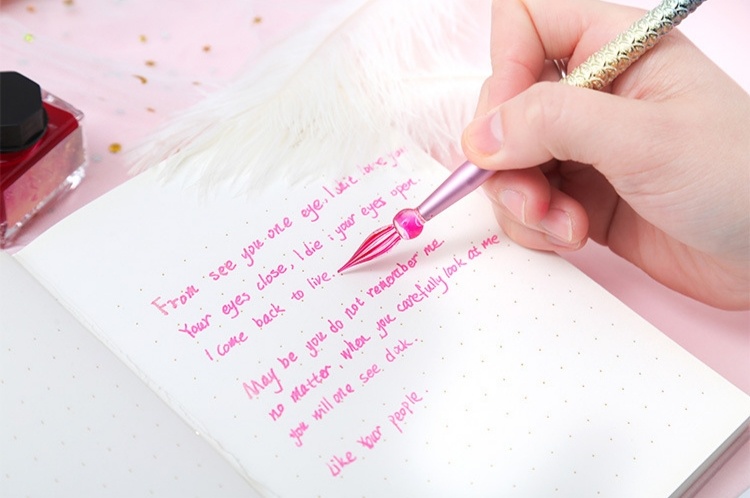 From see you one eye, I
Your eyes close, I die ; your eyes open.
I come back to live.
May be you do not remember me
no matter, when you carefully look as me
you will one see
Like Your people